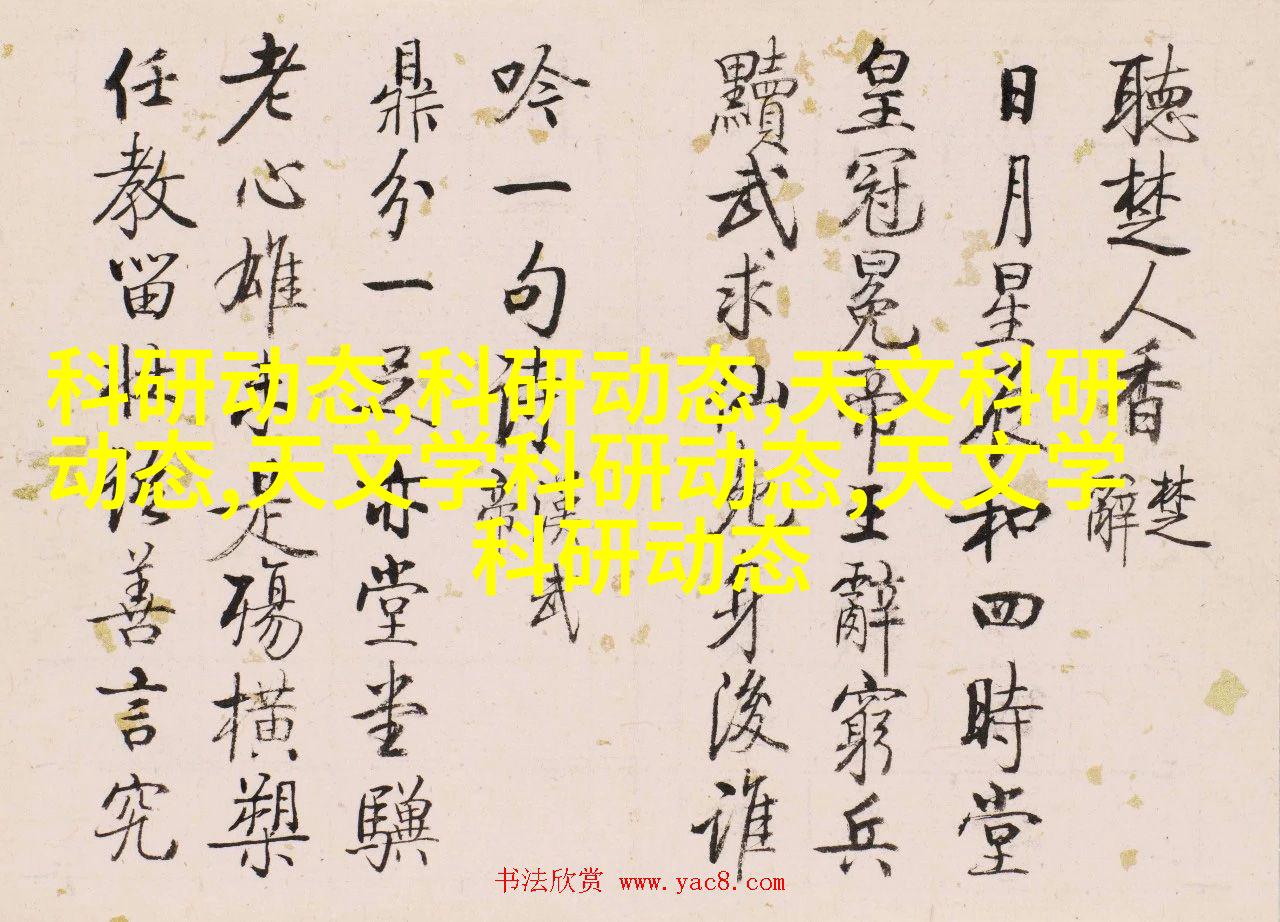 聽楚人香楚辭
日月星辰和四時堂
皇冠冕帝王辭窮兵
黷武求仙身後誰
吟一句漢武帝
鼎分一亦堂堂驥
老心雄是殤橫槊
任教留善言究
科研动态,科研动态,天文科研
动态,天文学科研动态,天文学
科研动态
书法欣赏 www.yac8.com